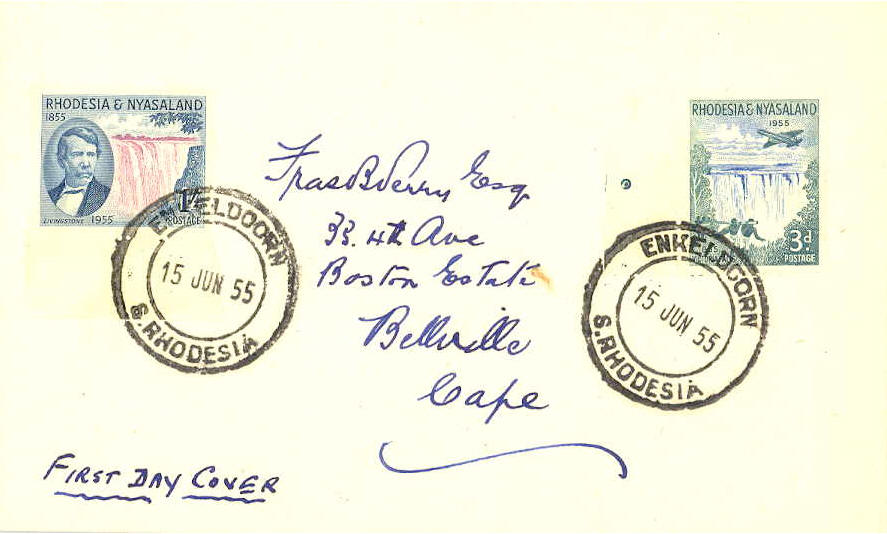 RHODESIA & NYASALAND
1855
LIVINGSTONE 1955
1/-
POSTAGE
RHODESIA & NYASALAND
1955
3d.
POSTAGE
ENKELDOORN
15 JUN 55
S. RHODESIA
ENKELDOORN
15 JUN 55
S. RHODESIA
Esq
33. 4th Ave
Boston Estate
Bellville
Cape
FIRST DAY COVER